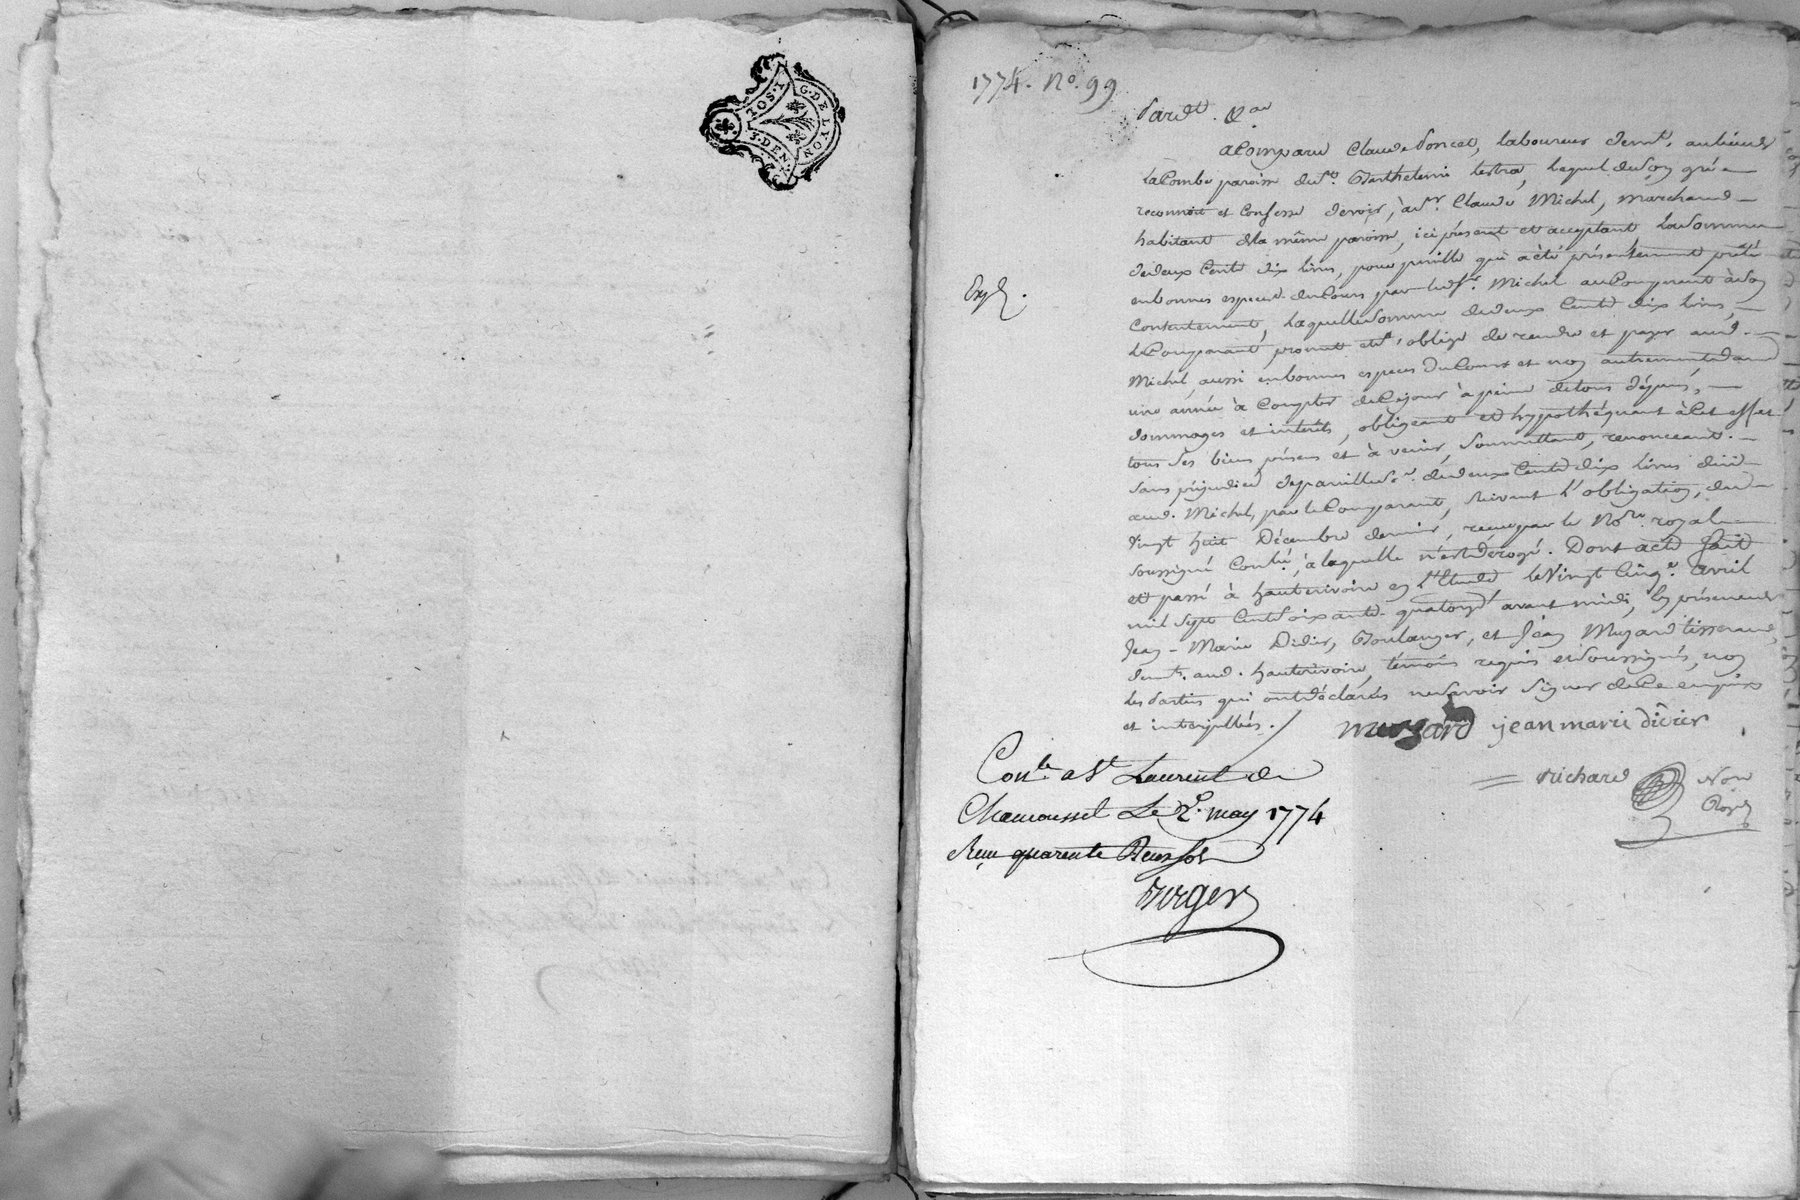 G. DE LYON
1774. No. 99
Pardt. &a
a Comparu Claude Poncet, laboureur demt. au lieu de
la Combe paroisse de St. Barthelemi Lestra, lequel de son gré a
reconnoit et confesse devoir, à sr. Claude Michel, marchand
habitant de la même paroisse, ici présent et acceptant la somme
de deux Cents dix livres, pour pareille qui a été présentement prêté
en bonnes especes du Cours par led. sr. Michel au Comparant à son
Contentement, laquelle somme de deux Cents dix livres,
le Comparant promet et s'oblige de rendre et payer aud.
Michel, aussi en bonnes especes du Cours et non autrement dans
une année à Compter de Ce jour à peine de tous dépens,
dommages et intérêts, obligeant et hypothéquant à Cet effet
tous ses biens présens et à venir, soumettant, renonceant.
sans préjudice de pareille se. de deux Cents dix livres due
aud. Michel, par le Comparant, suivant l'obligation, du
vingt huit Décembre dernier, reçue par le Nore. royal
soussigné Conlé, à laquelle n'est dérogé. Dont acte fait
et passé à hauterivoire en l'Etude le vingt Cinq. avril
mil sept Cent soixante-quatorze avant midi, en présence de
Jean-Marie Didier, Boulanger, et Jean Muzard tisserand,
demts. aud. hauterivoire, témoins requis et soussignés, non
les parties qui ont déclarés ne savoir signer de Ce enquis
et interpellées.
muzard jean marie didier
Richard Nore
Royal
Exp.
Conle a St Laurent de
Chamousset Le 2. may 1774
Reçu quarente Deux sols
Burger